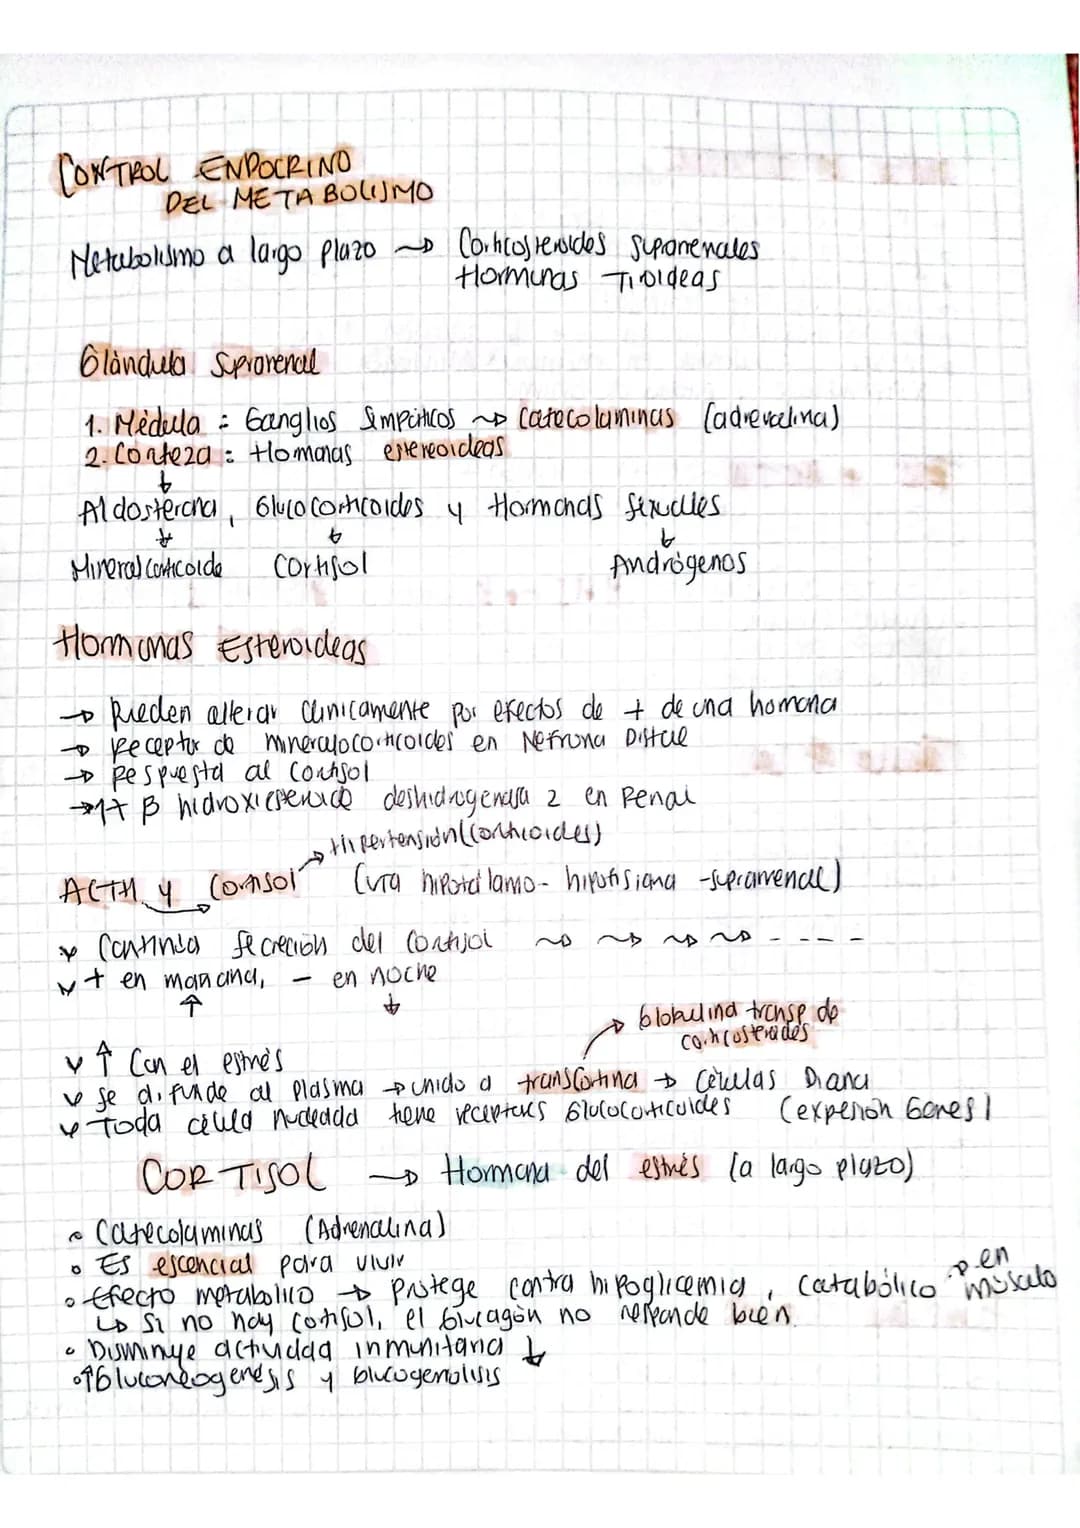 CONTROL ENDOCRINO
DEL METABOLISMO
Metabolismo a largo plazo → Corticosteroides suparrenales
Hormonas Tiroideas
Glàndula Suprarenal
1. Mèdula : Ganglios Simpáticos → Catecolaminas (adrenalina)
2. Corteza : Hormonas estereoideas
↓
Aldosterona, Glucocorticoides y Hormonas Sexuales
↓ ↓ ↓
Mineralcorticoide Cortisol Andrògenos
Hormonas Esteroideas
→ Pueden alterar clinicamente por efectos de + de una hormona
→ Receptor de mineralocorticoides en Nefrona Distal
→ Respuesta al Cortisol
→ β deshidrogenasa 2 en Renal
→ Hipertensión (corticoides)
ACTH y Cortisol (vía hipotálamo - hipofisiana - suprarrenal)
Continua secreción del Cortisol → → → → - - - -
+ en manana, - en noche
↑ ↓
→ Globulina transp de
corticosteroides
↑ Con el estrès
Se difunde al plasma → unido a transcortina → Cèlulas Diana
Toda célula nucleada tiene receptores Glucocorticoides (expesión Genes)
CORTISOL → Hormona del estrès (a largo plazo)
• Catecolaminas (Adrenalina)
• Es escencial para vivir
• Efecto metabolico → Protege contra hipoglicemia, catabólico → en músculo
↳ Si no hay cortisol, el Glucagòn no responde bien.
• Disminuye actividad inmunitaria ↓
• ↑Gluconeogenesis y Glucogenolisis